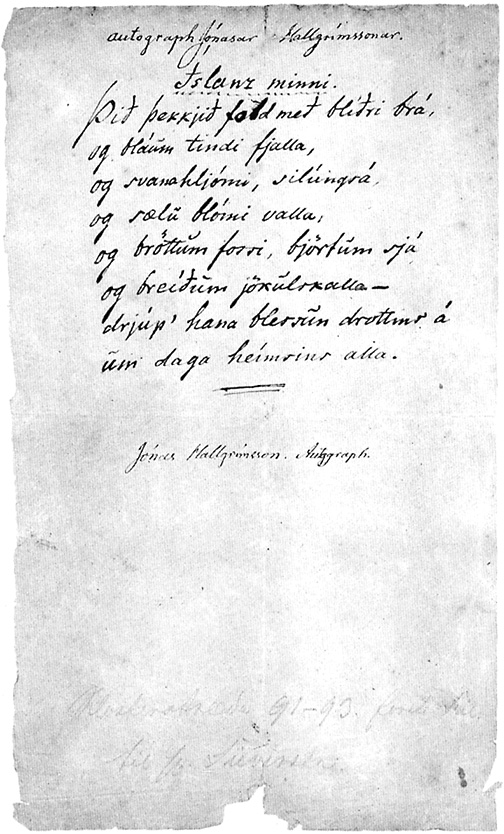 autograph Jónasar Hallgrímssonar.
Íslanz minni.
Þið þekkjið fold með blíðri brá,
og bláum tindi fjalla,
og svanahljómi, silúngsá,
og sælu blómi valla,
og bröttum fossi, björtum sjá
og breiðum jökulskalla —
drjúp' hana blessun drottins á
um daga heimsins alla.
Jónas Hallgrímsson. Autograph.
91-93.
til